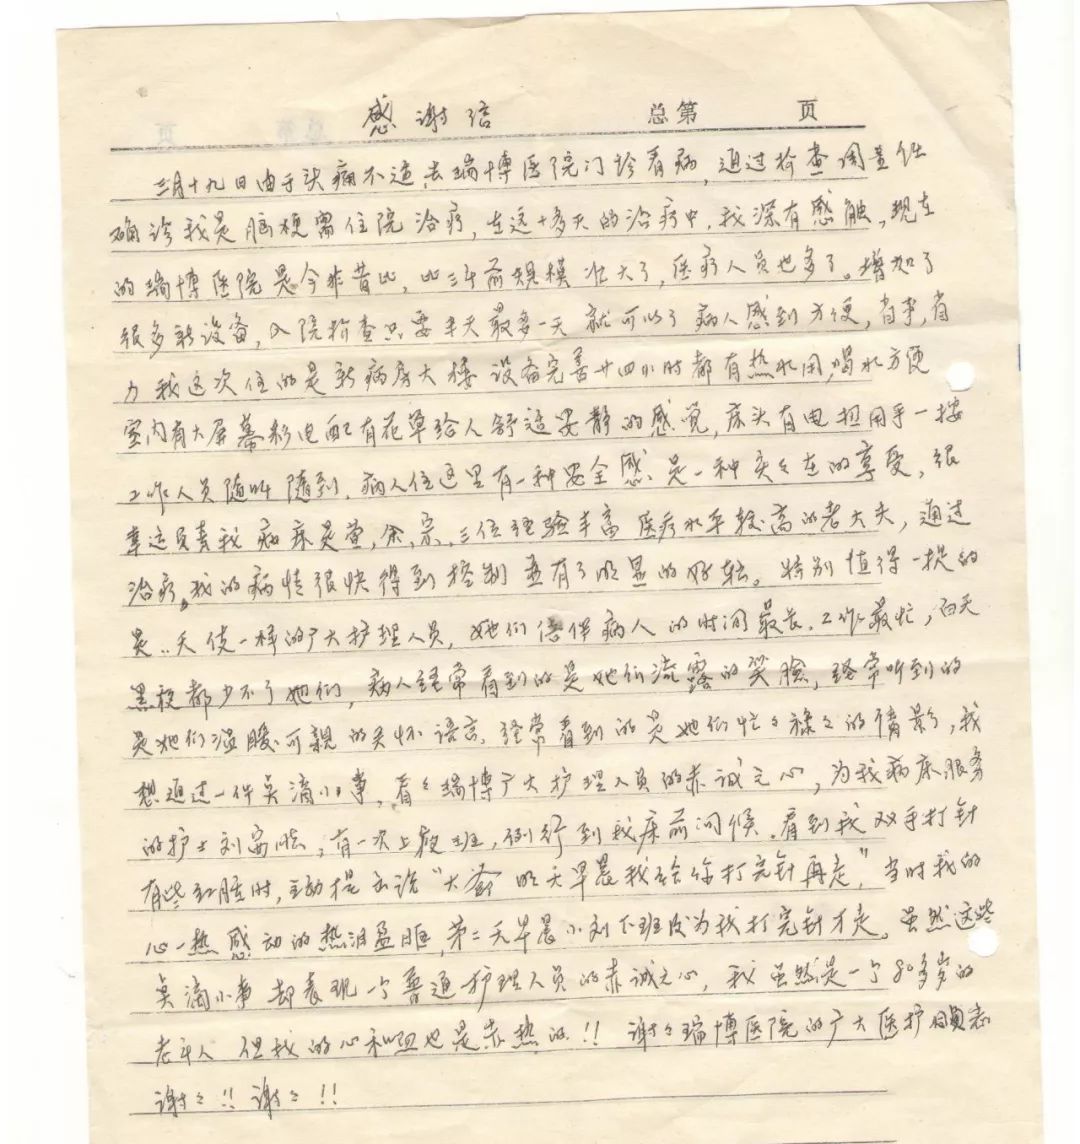 感谢信 总第 页
三月十九日由于头痛不适,去瑞博医院门诊看病,通过检查调查性
确诊我是脑梗需住院治疗,在这十多天的治疗中,我深有感触,现在
的瑞博医院是今非昔比,比三年前规模壮大了,医疗人员也多了。增加了
很多新设备,入院检查只要半天最多一天 就可以了 病人感到方便,省事,省
力 我这次住的是新病房大楼 设备完善廿四小时都有热水用,喝水方便
室内有大屏幕彩电配有花草给人舒适安静的感觉,床头有电扭用手一按
工作人员随叫随到,病人住这里有一种安全感 是一种实々在的享受,很
幸运负责我病床是董,余,宗,三位经验丰富 医疗水平较高的老大夫,通过
治疗,我的病情很快得到控制 并有了明显的好转。特别值得一提的
是..天使一样的广大护理人员,她们陪伴病人的时间最长,工作最忙,白天
黑夜都少不了她们,病人经常看到的是她们流露的笑脸,经常听到的
是她们温暖可親的关怀语言,经常看到的是她们忙々禄々的倩影,我
想通过一件点滴小事,看々瑞博广大护理人员的赤诚之心,为我病床服务
的护士刘 ,有一次上夜班,例行到我床前问候,看到我双手打针
有些红肿时,主动提出说“大爷 明天早晨我给你打完针再走”,当时我的
心一热 感动的热泪盈眶,第二天早晨小刘下班后为我打完针才走,虽然这些
点滴小事 却表现一个普通护理人员的赤诚之心,我虽然是一个80多岁的
老年人 但我的心和血也是赤热的!! 谢々瑞博医院的广大医护 者
谢々!! 谢々!!